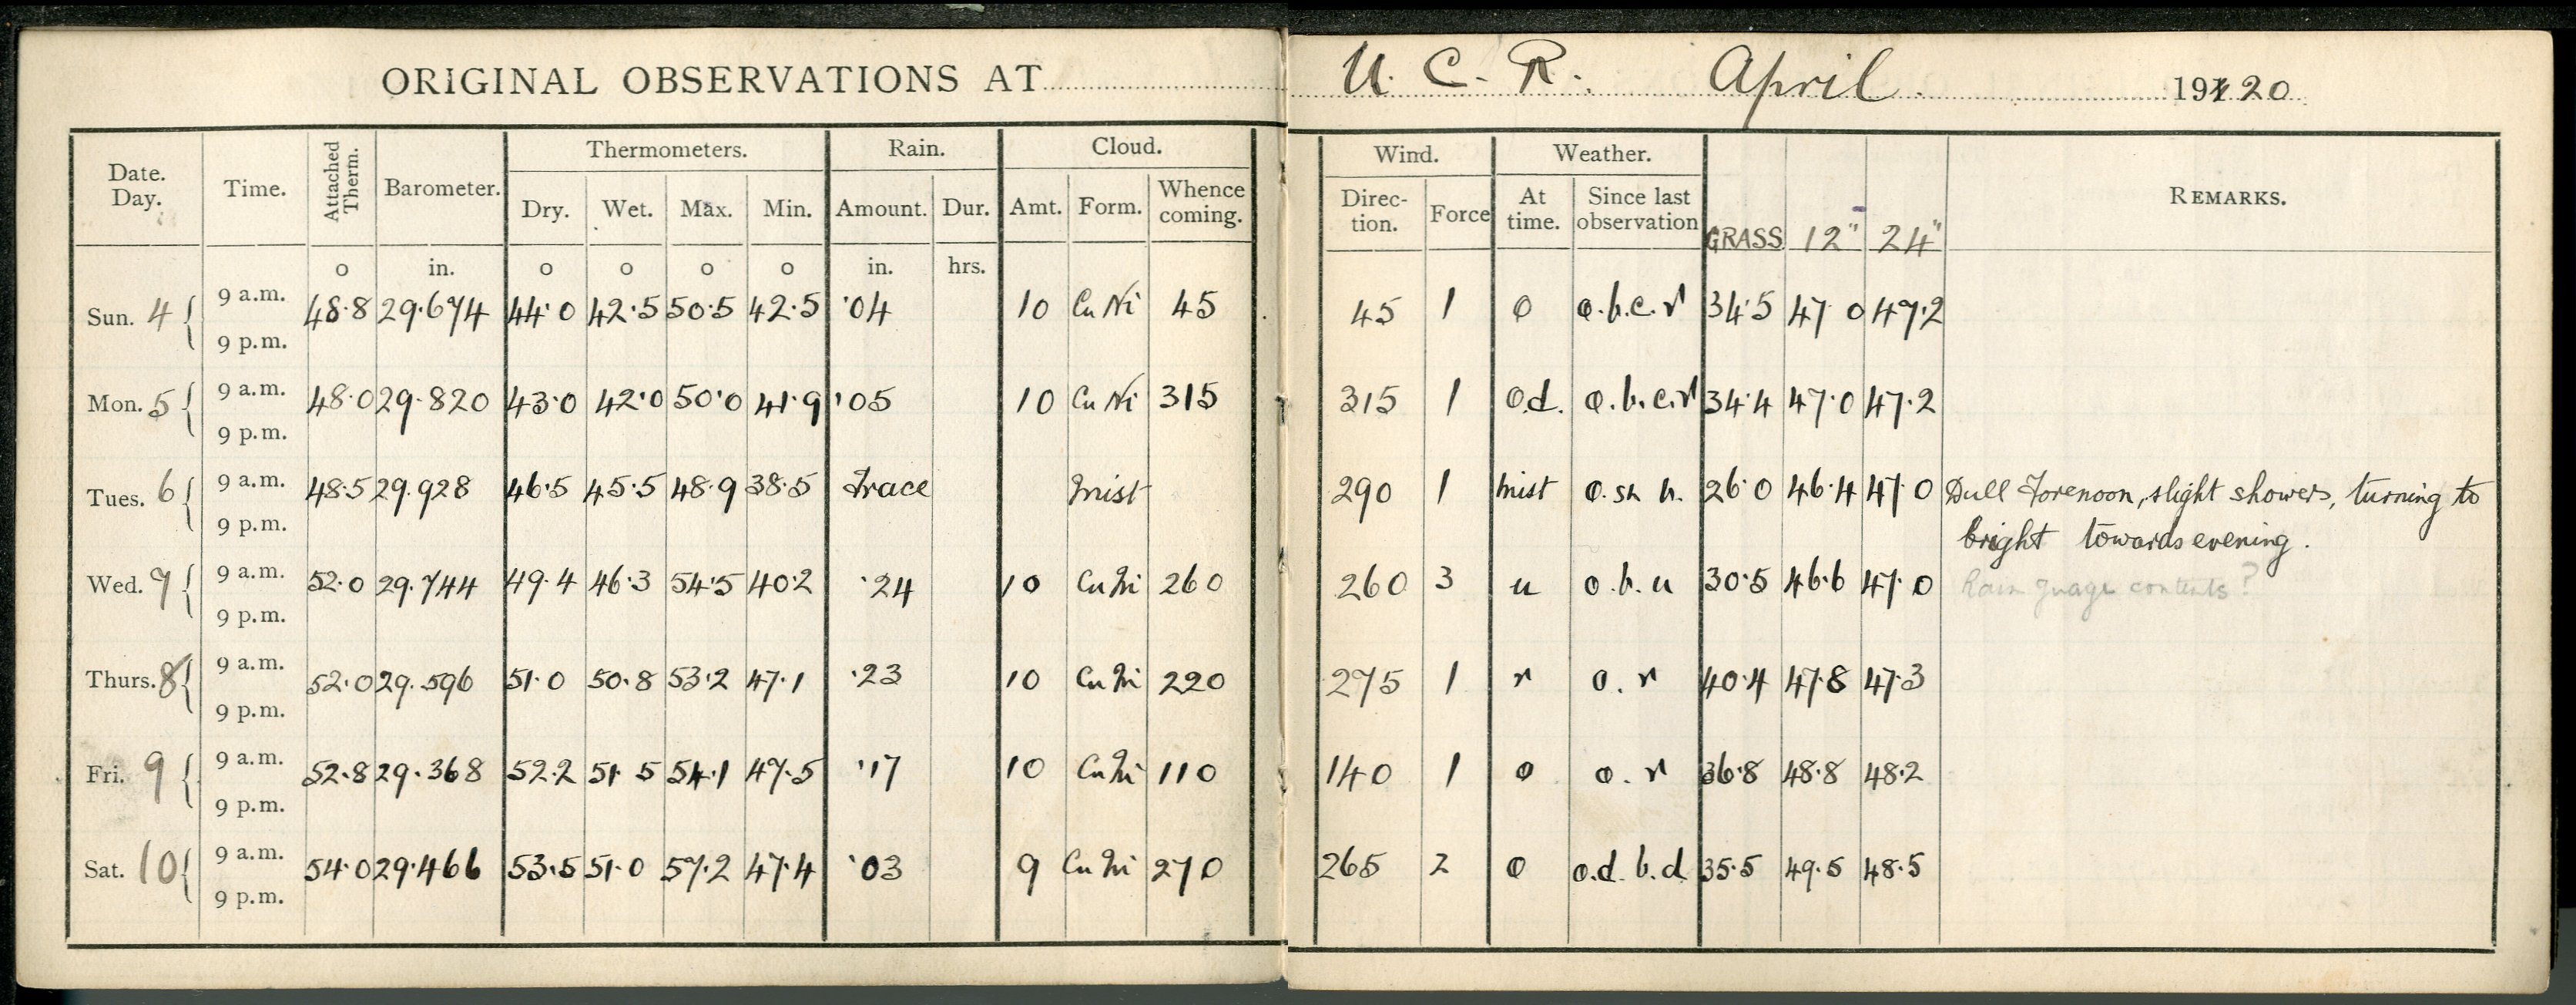 ORIGINAL OBSERVATIONS AT U. C. R. April. 1920
Date. Day. Time. Attached Therm. Barometer. Thermometers. Rain. Cloud. Wind. Weather. REMARKS.
Dry. Wet. Max. Min. Amount. Dur. Amt. Form. Whence coming. Direction. Force At time. Since last observation GRASS 12" 24"
o in. o o o o in. hrs.
Sun. 4 9 a.m. 48.8 29.674 44.0 42.5 50.5 42.5 .04 10 Cu Ni 45 45 1 o o.b.c.r 34.5 47.0 47.2
9 p.m.
Mon. 5 9 a.m. 48.0 29.820 43.0 42.0 50.0 41.9 .05 10 Cu Ni 315 315 1 o.d. o.b.c.r 34.4 47.0 47.2
9 p.m.
Tues. 6 9 a.m. 48.5 29.928 46.5 45.5 48.9 38.5 Trace mist 290 1 mist 26.0 46.4 47.0 Dull Forenoon, slight showers, turning to
9 p.m. bright towards evening.
Wed. 7 9 a.m. 52.0 29.744 49.4 46.3 54.5 40.2 .24 10 Cu Ni 260 260 3 u o.b.u 30.5 46.6 47.0 Rain guage contents?
9 p.m.
Thurs. 8 9 a.m. 52.0 29.596 51.0 50.8 53.2 47.1 .23 10 Cu Ni 220 275 1 r o.r 40.4 47.8 47.3
9 p.m.
Fri. 9 9 a.m. 52.8 29.368 52.2 51.5 54.1 47.5 .17 10 Cu Ni 110 140 1 o o.r 36.8 48.8 48.2
9 p.m.
Sat. 10 9 a.m. 54.0 29.466 53.5 51.0 57.2 47.4 .03 9 Cu Ni 270 265 2 o o.d.b.d 35.5 49.5 48.5
9 p.m.